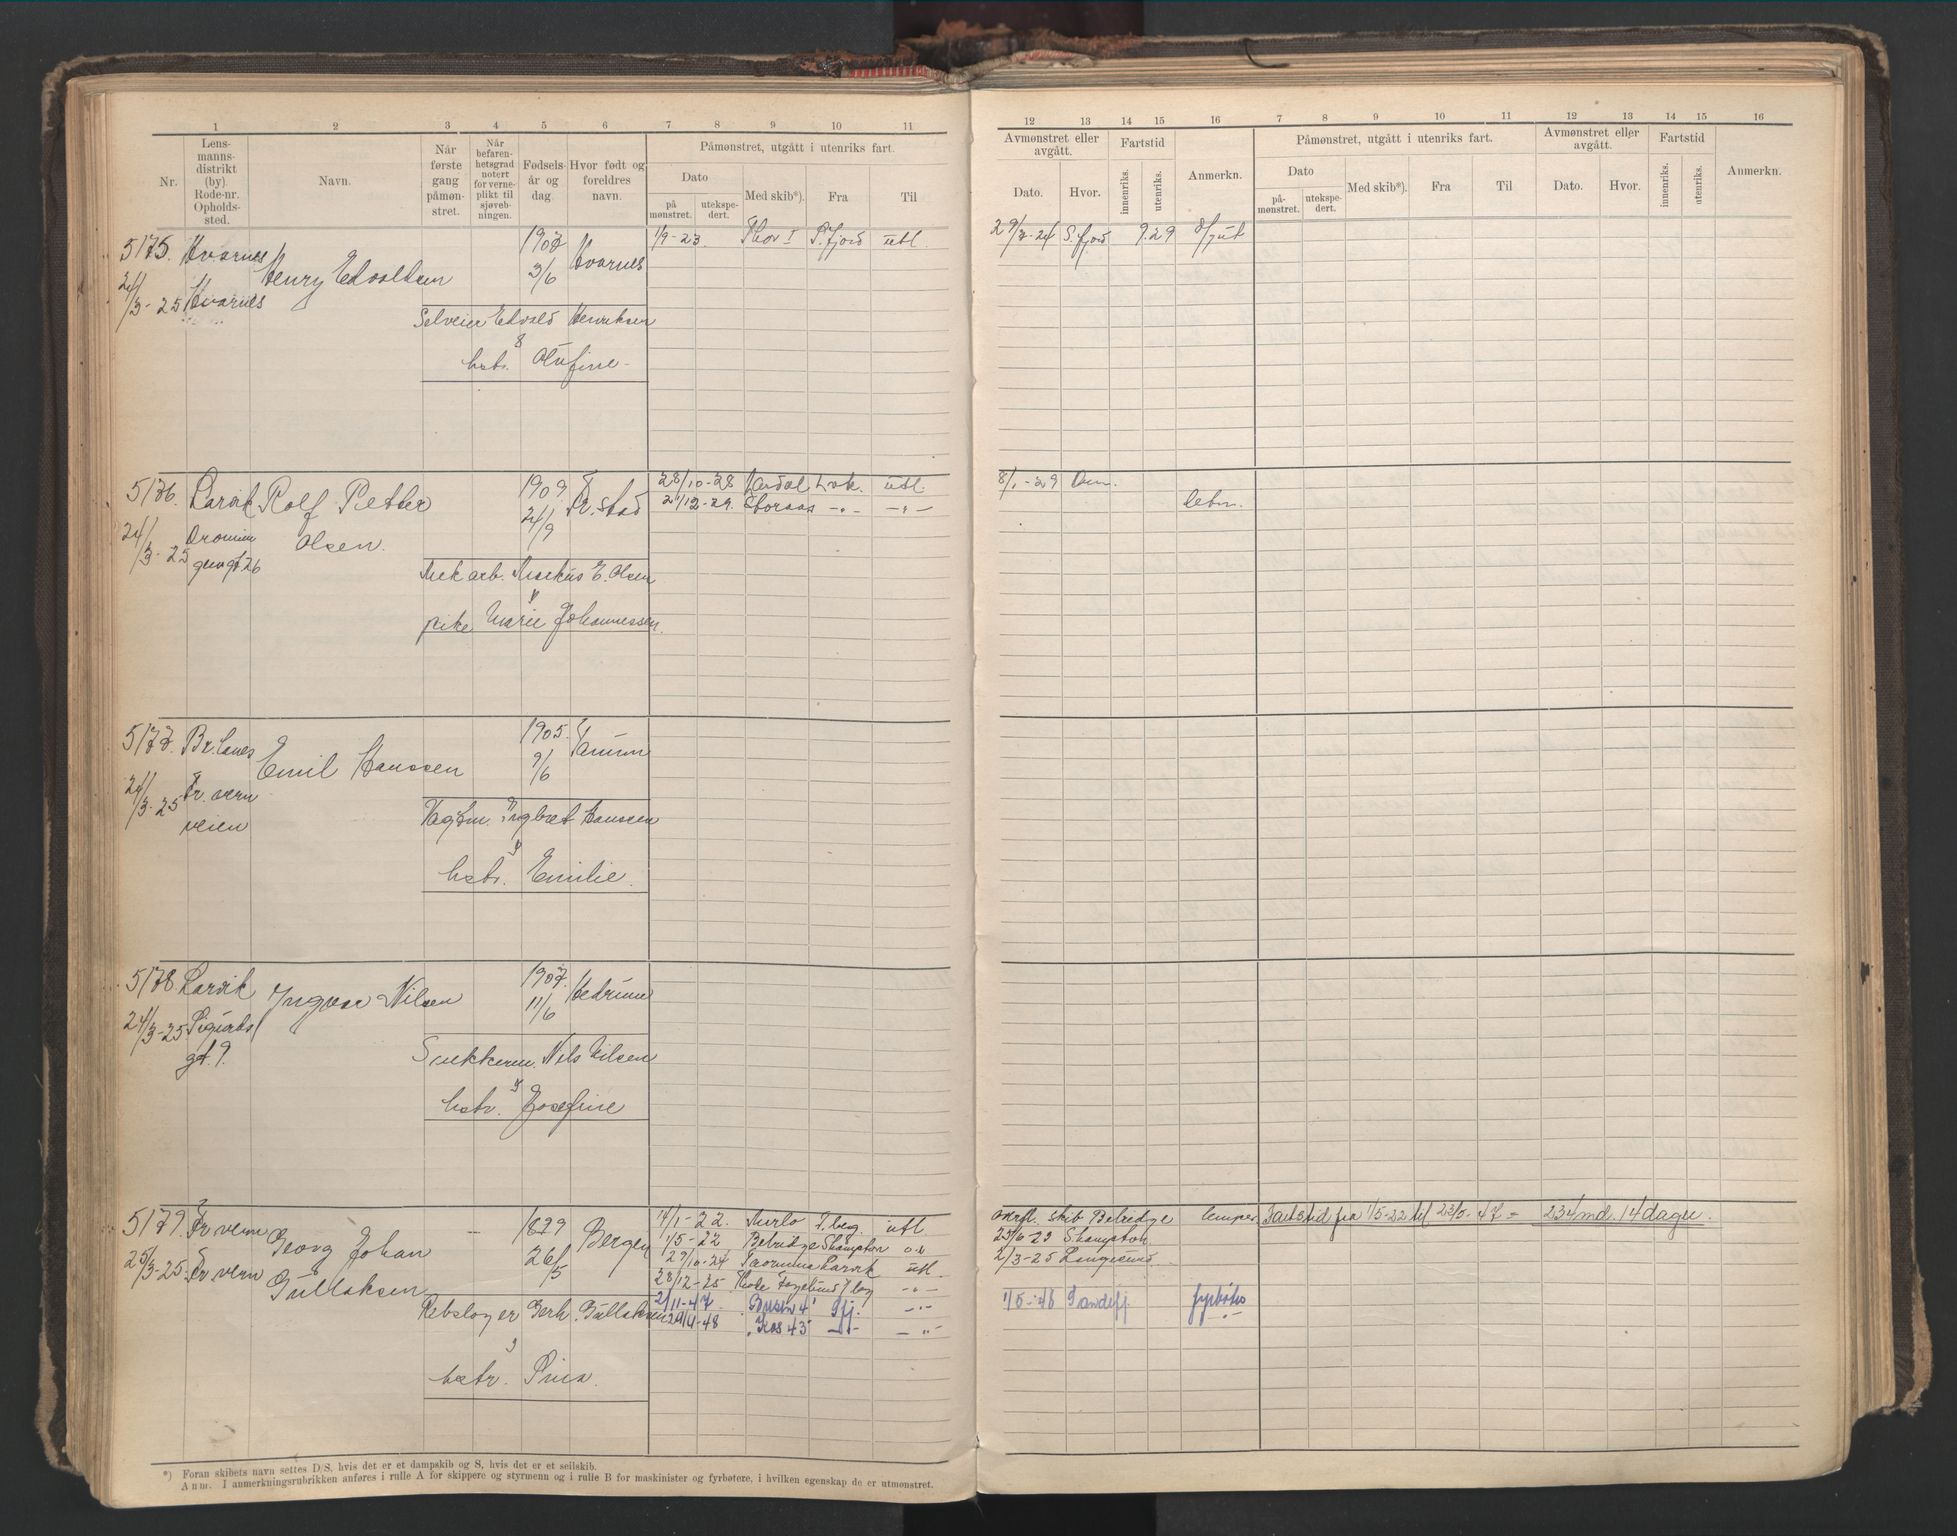 1 2 3 4 5 6 7 8 9 10 11
Nr.
Lens-
manns-
distrikt
(by).
Rode-nr.
Opholds-
sted.
Navn.
Når
første
gang
påmøn-
stret.
Når
befaren-
hetsgrad
notert
for verne-
plikt til
sjøveb-
ningen.
Fødsels-
år og
dag.
Hvor født og
foreldres
navn.
Påmønstret, utgått i utenriks fart.
Dato
på
mønstret.
utekspe-
dert.
Med skib*).
Fra
Til
12 13 14 15 16 7 8 9 10 11 12 13 14 15 16
Avmønstret eller
avgått.
Dato.
Hvor.
Fartstid
innenriks.
utenriks.
Anmerkn.
Påmønstret, utgått i utenriks fart.
Dato
på-
mønstret.
utekspe-
dert.
Med skib*).
Fra
Til
Avmønstret eller
avgått.
Dato.
Hvor.
Fartstid
innenriks.
utenriks.
Anmerkn.
5175. Hvarnes Henry Edvaldsen 1907 Hvarnes 1/9-23. Thor I S.fjord utl.
24/3-25 Hvarnes 3/6
Selveier Edvald Henriksen
&
hstr. Olufine
29/7-24 S.fjord 9.29
5176. Larvik Rolf Petter 1909 Fr.stad 28/10-28 Lvk. utl.
24/3-25 Olsen. 24/9 21/12-29. Storaas -"- -"-
gt 26
Mek arb. Markus E. Olsen
&
pike Marie Johannessen.
8/1-29
5177. Br.lanes Emil Hanssen 1905. Tanum
24/3-25 Fr.vern 9/6
veien
Ingbret Hanssen
&
hstr. Emilie.
5178. Larvik Ingvar Nilsen 1907. Hedrum
24/3-25 Sigurds 11/6
gt. 9.
Snekkerm. Nils Nilsen
&
hstr. Josefine
5179. Fr.vern Georg Johan - 1879 Bergen 14/1-22. T.beg. utl.
25/3-25. Fr.vern Gullaksen 26/5 1/5-22 Belridge Shampton
29/10-24 Taormina Larvik utl.
28/12-25 -"-
Rebslager Gerh. Gullaksen 2/11-47. "Busen 4" Sfj. -"-
29/4-48 "Kos 43" -"- -"-
&
hstr. Lina.
overfl. skib Belridge lemper Fartstid fra 1/5-22 til 23/5-47 = 234 md. 14 dager.
23/6-23 Shampton
2/3-25 Langesund
1/5-48 Sandefj. fyrbøter
*) Foran skibets navn settes D/S, hvis det er et dampskib og S, hvis det er et seilskib.
Anm. I anmerkningsrubrikken anføres i rulle A for skippere og styrmenn og i rulle B for maskinister og fyrbøtere, i hvilken egenskap de er utmønstret.